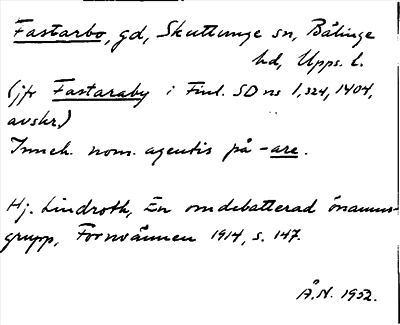 Fastarbo, gd, Skuttunge sn, Bälinge
hd, Upps. l.
(jfr Fastaraby i Finl. SD ns 1, 324, 1404,
avskr.)
Inneh. nom. agentis på -are.
Hj. Lindroth, En omdebatterad önamns-
grupp, Fornvännen 1914, s. 147.
Å.N. 1952.